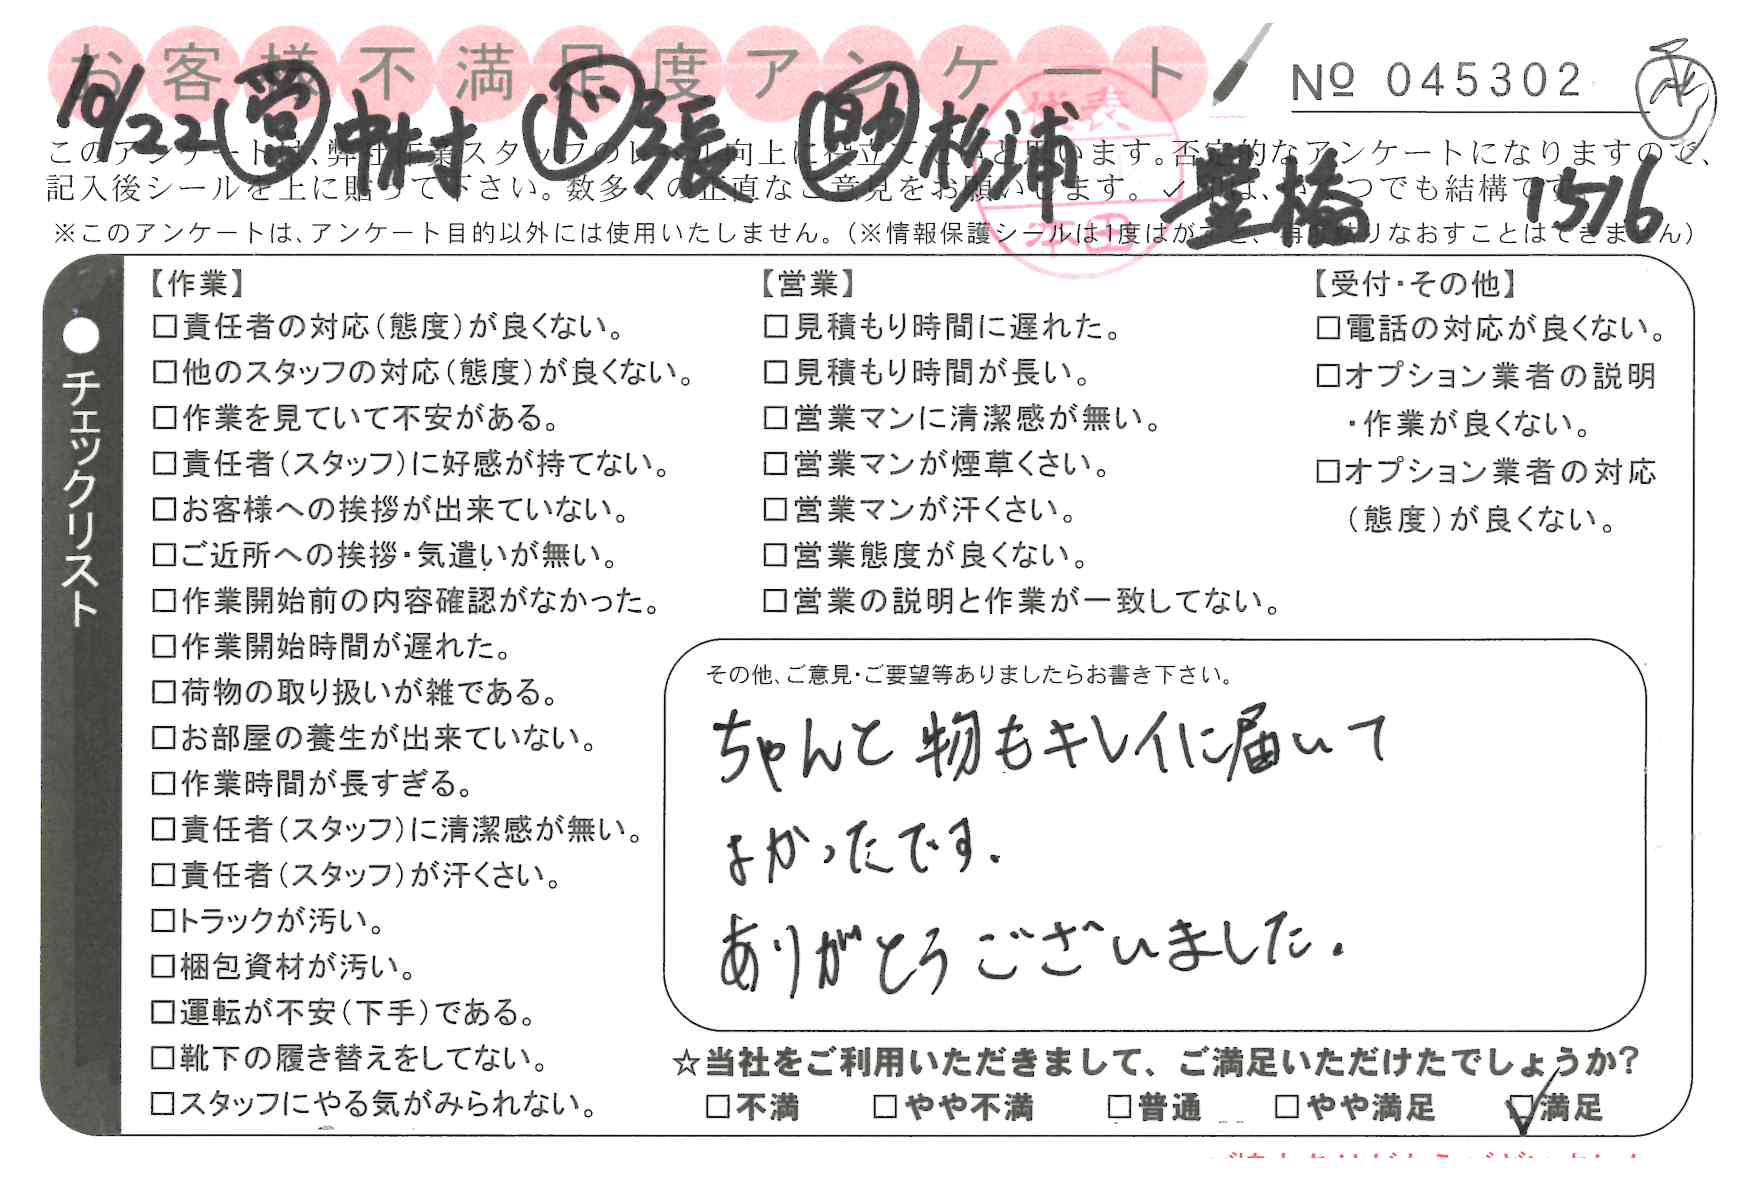 お客様不満足度アンケート
№ 045302
10/22 営 中村 ド 張 助 杉浦 豊橋 1516
代表
本田
このアンケートは、弊社作業スタッフのレベル向上に役立てたいと思います。否定的なアンケートになりますので、
記入後シールを上に貼って下さい。数多くの正直なご意見をお願いします。✓印は、いくつでも結構です。
※このアンケートは、アンケート目的以外には使用いたしません。(※情報保護シールは1度はがすと、再度貼りなおすことはできません)
●チェックリスト
【作業】
□責任者の対応(態度)が良くない。
□他のスタッフの対応(態度)が良くない。
□作業を見ていて不安がある。
□責任者(スタッフ)に好感が持てない。
□お客様への挨拶が出来ていない。
□ご近所への挨拶・気遣いが無い。
□作業開始前の内容確認がなかった。
□作業開始時間が遅れた。
□荷物の取り扱いが雑である。
□お部屋の養生が出来ていない。
□作業時間が長すぎる。
□責任者(スタッフ)に清潔感が無い。
□責任者(スタッフ)が汗くさい。
□トラックが汚い。
□梱包資材が汚い。
□運転が不安(下手)である。
□靴下の履き替えをしてない。
□スタッフにやる気がみられない。
【営業】
□見積もり時間に遅れた。
□見積もり時間が長い。
□営業マンに清潔感が無い。
□営業マンが煙草くさい。
□営業マンが汗くさい。
□営業態度が良くない。
□営業の説明と作業が一致してない。
【受付・その他】
□電話の対応が良くない。
□オプション業者の説明
・作業が良くない。
□オプション業者の対応
(態度)が良くない。
その他、ご意見・ご要望等ありましたらお書き下さい。
ちゃんと物もキレイに届いて
よかったです.
ありがとうございました.
☆当社をご利用いただきまして、ご満足いただけたでしょうか?
□不満 □やや不満 □普通 □やや満足 ☑満足